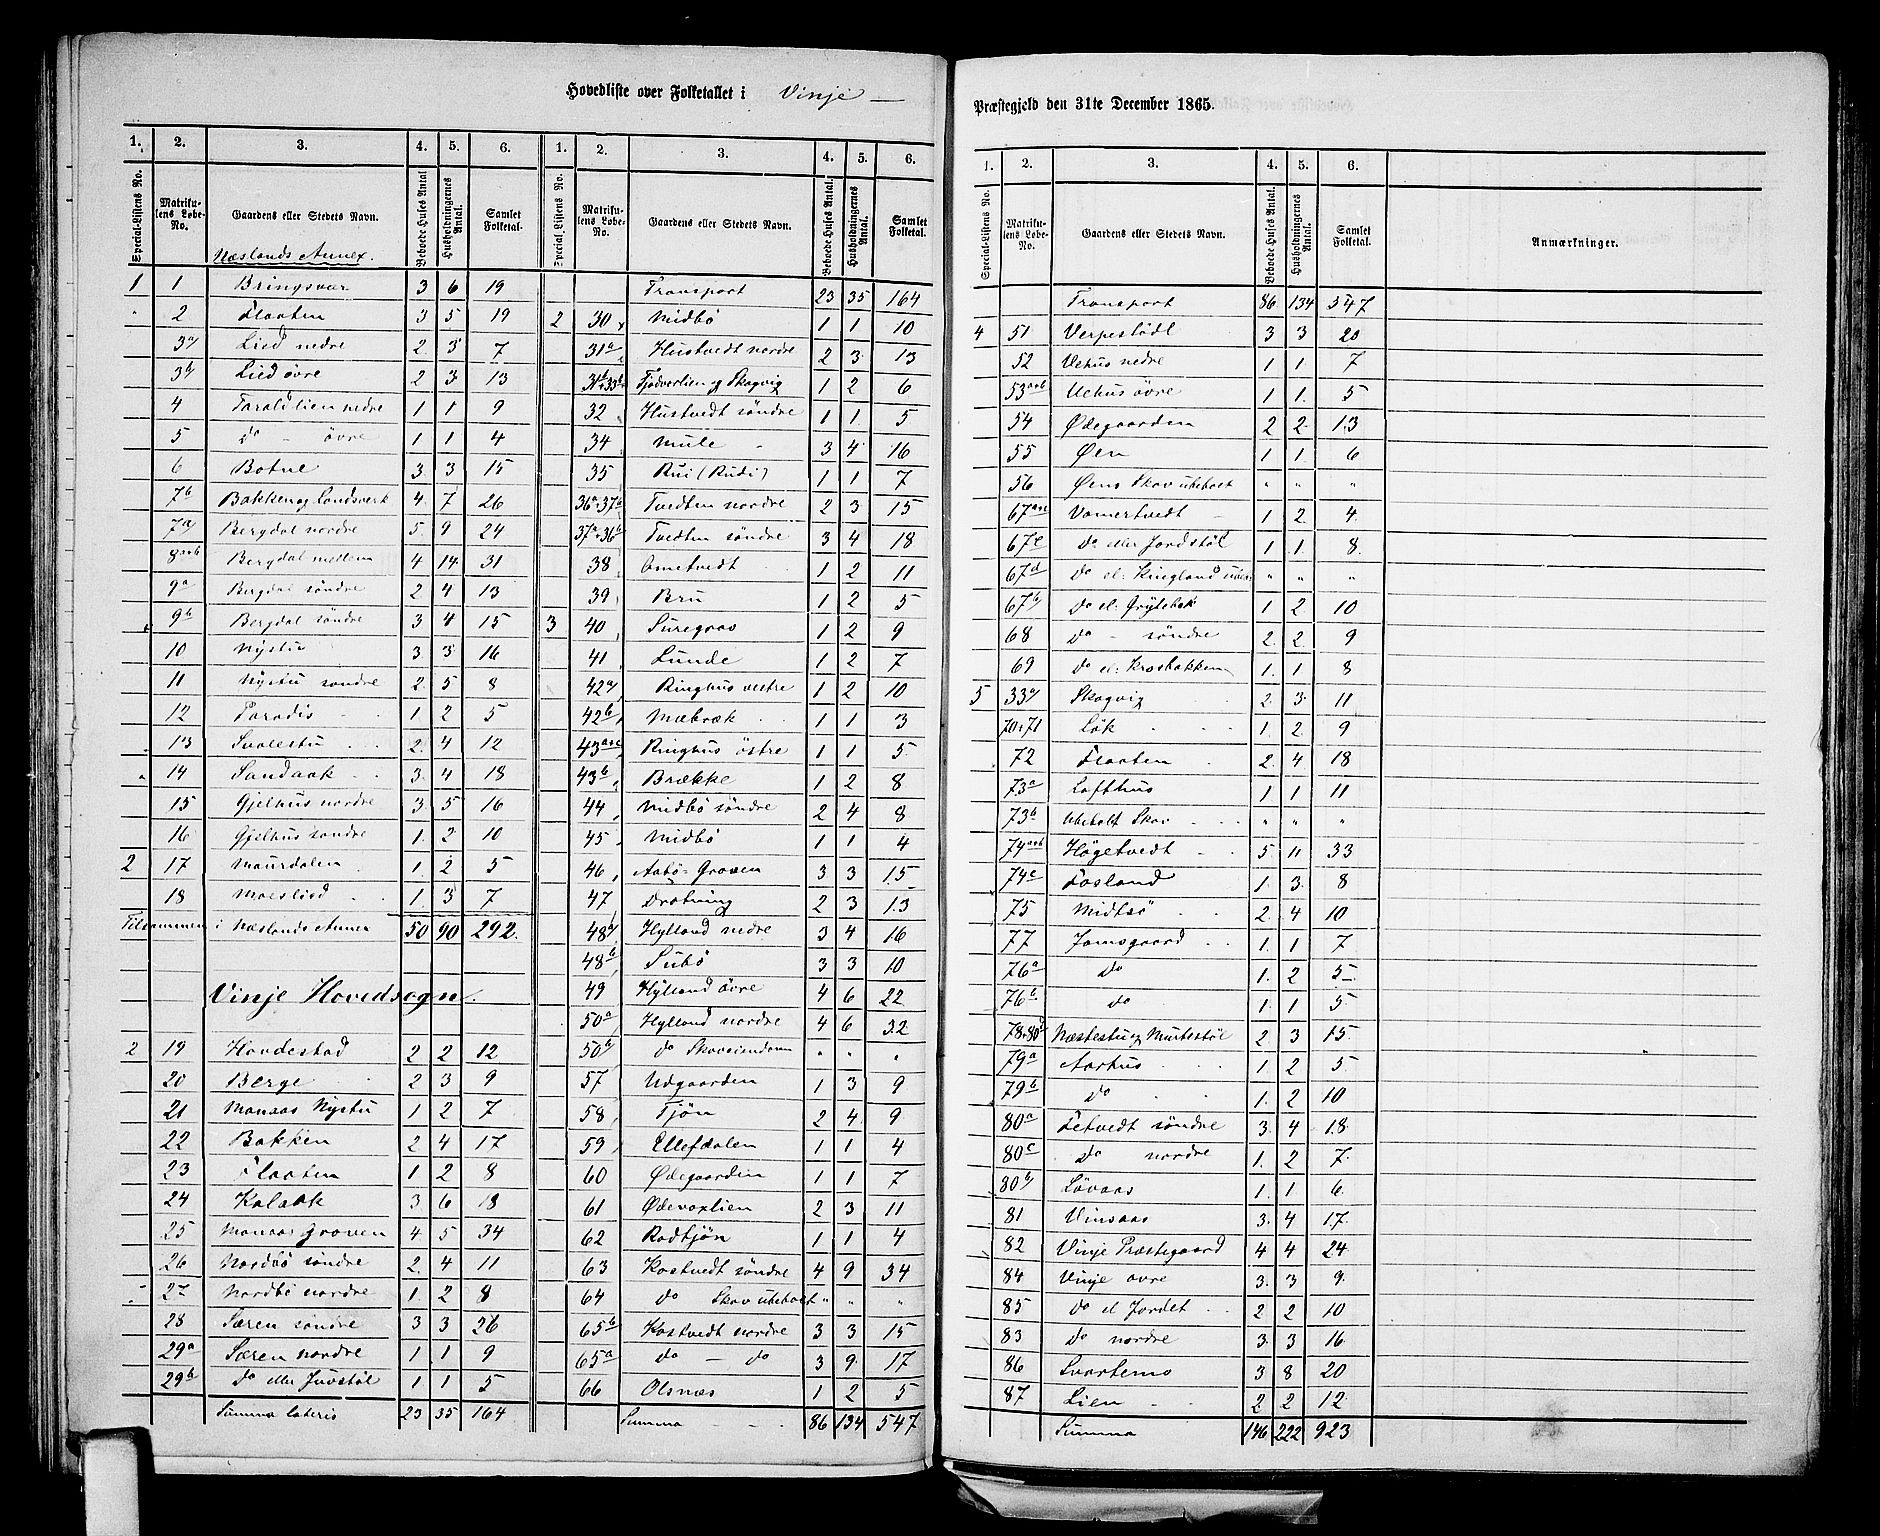 Hovedliste over Folketallet i Vinje —
1. 2. 3. 4. 5. 6. 1. 2. 3. 4. 5. 6.
Special-Listens No. Matrikulens Løbe-No. Gaardens eller Stedets Navn. Beboede Huses Antal Husholdningernes Antal. Samlet Folketal. Special-Listens No. Matrikulens Løbe-No. Gaardens eller Stedets Navn. Beboede Huses Antal. Husholdningernes Antal. Samlet Folketal.
Næslands Annex.
1 1 Bringsvær 3 6 19
" 2 Flaaten 3 5 19
3a) Lied nedre 2 3 7
3b) Lied övre 2 3 13
4 Taraldlien nedre 1 1 9
5 Do - övre 1 1 4
6 Botne 3 3 15
7b Bakken og Landsverk 4 7 26
7a) Bergdal nordre 5 9 24
8a+b Bergdal mellem 4 14 31
9a Bergdal söndre 2 4 13
9b Bergdal söndre 3 4 15
10 Nystu 3 3 16
11 Nystu söndre 2 5 8
12 Paradis 1 2 5
13 Svalestu 2 4 12
14 Sandaak 3 4 18
15 Gjelhus nordre 3 5 16
16 Gjelhus söndre 1 2 10
2 17 Maurdalen 1 2 5
18 Moeslied 1 3 7
Tilsammen i Næslands Annex 50 90 292.
Vinje Hovedsogn.
2 19 Hovdestad 2 2 12
20 Berge 2 3 9
21 Manaas Nystu 1 2 7
22 Bakken 2 4 17
23 Flaaten 1 2 8
24 Kalaak 3 6 18
25 Manaas Groven 4 5 34
26 Nordbö söndre 2 4 11
27 Nordbö nordre 1 2 8
28 Særen söndre 3 3 26
29a Særen nordre 1 1 9
29b Do eller Juvstöl 1 1 5
Summa lateris 23 35 164
Transport 23 35 164
2 30 Midbö 1 1 10
31a Hustvedt nordre 2 3 13
31b+33b Tjodverlien og Skogvig 1 2 6
32 Hustvedt söndre 1 1 5
34 Mule 3 4 16
35 Rui (Rudi) 1 1 7
36a+37b Tvedten nordre 2 3 15
37a+36b Tvedten söndre 3 4 18
38 Ometvedt 1 2 11
39 Bru 1 2 5
3 40 Suregrav 1 2 9
41 Lunde 1 2 7
42a) Ringhus vestre 1 2 10
42b Mæbræk 1 1 3
43a+c Ringhus östre 1 1 5
43b Brække 1 2 8
44 Midbö söndre 2 4 8
45 Midbö 1 1 4
46 Aabö-Groven 3 3 15
47 Dratning 2 3 13
48a) Hylland nedre 3 4 16
48b Subö 3 3 10
49 Hylland övre 4 6 22
50a Hylland nordre 4 6 32
50b do Skoveiendom " " "
57 Udgaarden 1 3 9
58 Tjön 2 4 9
59 Ellefdalen 1 1 4
60 Ødegaarden 1 1 7
61 Ødevaslien 2 3 11
62 Rodtjön 1 1 4
63 Kostvedt söndre 4 9 34
64 do Skov ubeboet " " "
65b Kostvedt nordre 3 3 15
65a do — do 3 9 17
66 Olsnæs 1 2 5
Summa 86 134 547
Præstegjeld den 31te December 1865.
1. 2. 3. 4. 5. 6.
Special-Listens No. Matrikulens Løbe-No. Gaardens eller Stedets Navn. Beboede Huses Antal. Husholdningernes Antal. Samlet Folketal. Anmærkninger.
Transport 86 134 547
4 51 Verpestödl 3 3 20
52 Uehus nedre 1 1 7
53a+b Uehus övre 1 1 5
54 Ødegaarden 2 2 13
55 Øen 1 1 6
56 Øens Skov ubeboet " " "
67a+c Vamertvedt 1 2 4
67e Do eller Jordstöl 1 1 8
67d Do el: Kingland " " "
67b) Do el: Grytebek 1 2 10
68 Do - söndre 2 2 9
69 Do el: Krosbakken 1 1 8
5 33a) Skogvig 2 3 11
70+71 Lök 1 2 9
72 Flaaten 2 4 18
73a Lofthus 1 1 11
73b Ubebot Skov " " "
74a+b Högetvedt 5 11 33
74c Fosland 1 3 8
75 Midtsö 2 4 10
77 Jamsgaard 1 1 7
76a Do 1 2 5
76b do 1 1 5
78+80d Næstestu og Murtestöl 2 3 15
79a Aarhus 1 2 5
79b do 1 2 10
80a Fetvedt söndre 3 4 18
80c Do nordre 1 2 7
80b) Lövaas 1 1 6
81 Vinsaas 3 4 17
82 Vinje Præstegaard 4 4 24
84 Vinje övre 3 3 9
85 Do el Jordet 2 2 10
83 Do nordre 3 3 16
86 Svartemo 3 8 20
87 Lien 2 2 12
Summa 146 222 923